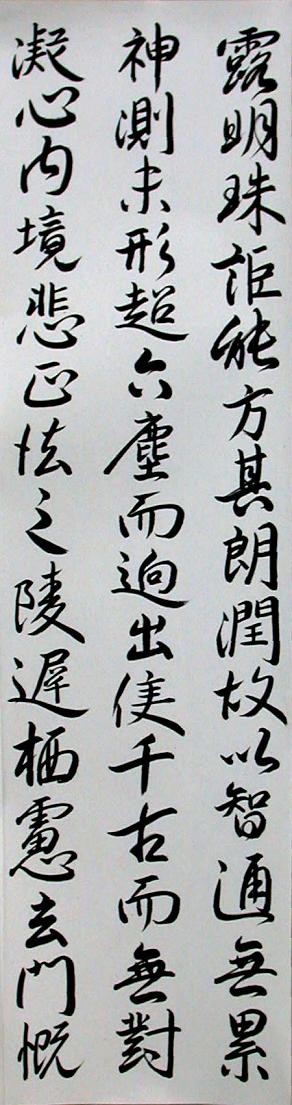 露明珠詎能方其朗潤故以智通無累
神測未形超六塵而逈出隻千古而無對
凝心内境悲正法之陵遲栖慮玄門慨